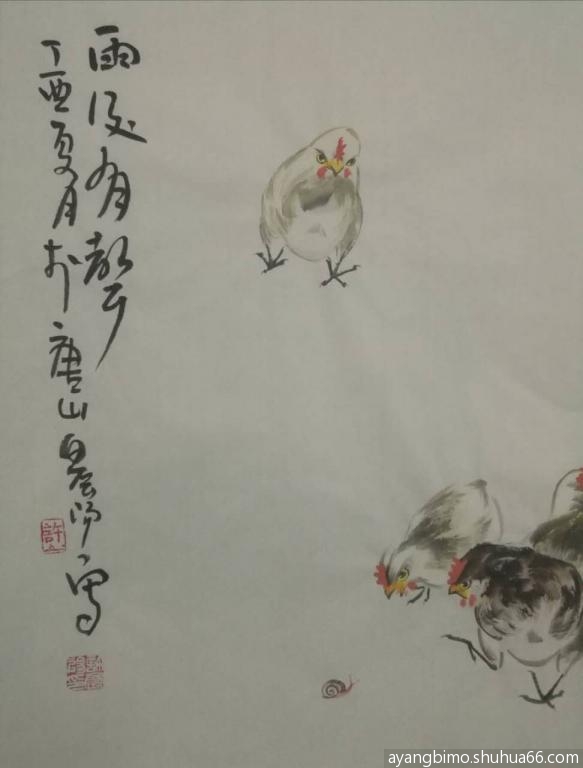 雨後有聲
丁酉夏月於唐山晨阳寫
許
ayangbimo.shuhua66.com